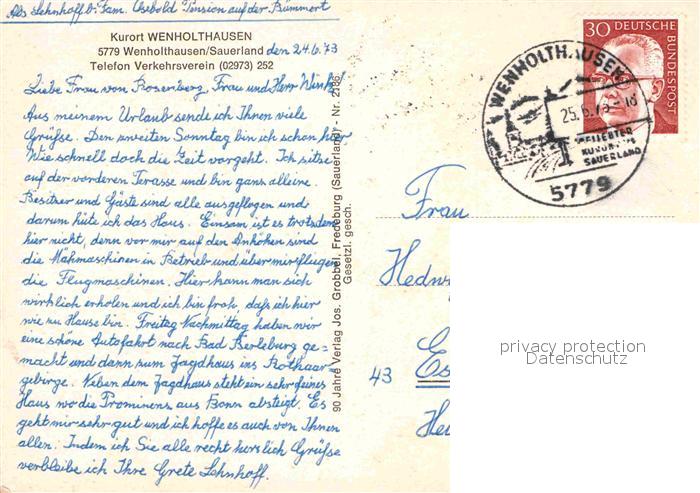 Abs Lehnhoff b. Fam. Osebold Pension auf der Bümmert
Kurort WENHOLTHAUSEN
5779 Wenholthausen/Sauerland den 24.6.73
Telefon Verkehrsverein (02973) 252
Liebe Frau von Rosenberg, Frau und Herr Winkl
Aus meinem Urlaub sende ich Ihnen viele
Grüfse. Den zweiten Sonntag bin ich schon hier
Wie schnell doch die Zeit vergeht. Ich sitze
auf der vorderen Terasse und bin ganz alleine.
Besitzer und Gäste sind alle ausgeflogen und
darum hüte ich das Haus. Einsam ist es trotzdem
hier nicht, denn vor mir auf den Anhöhen sind
die Mähmaschinen in Betrieb und über mir fliegen
die Flugmaschinen. Hier kann man sich
wirklich erholen und ich bin froh, dafs ich hier
wie zu Hause bin. Freitag Nachmittag haben wir
eine schöne Autofahrt nach Bad Berleburg ge=
macht und dann zum Jagdhaus ins Rothaar
gebirge. Neben dem Jagdhaus steht ein sehr feines
Haus wo die Prominenz aus Bonn absteigt. Es
geht mir sehr gut und ich hoffe es auch von Ihnen
allen. Indem ich Sie alle recht herzlich Grüfse
verbleibe ich Ihre Grete Lehnhoff.
90 Jahre Verlag Jos. Grobbel, Fredeburg (Sauerland) - Nr. 2138
Gesetzl. gesch.
30 DEUTSCHE
BUNDESPOST
WENHOLTHAUSEN
25.6.73-18
BELIEBTER
KURORT
SAUERLAND
5779
Frau
Hedw
43 Es
He
privacy protection
Datenschutz